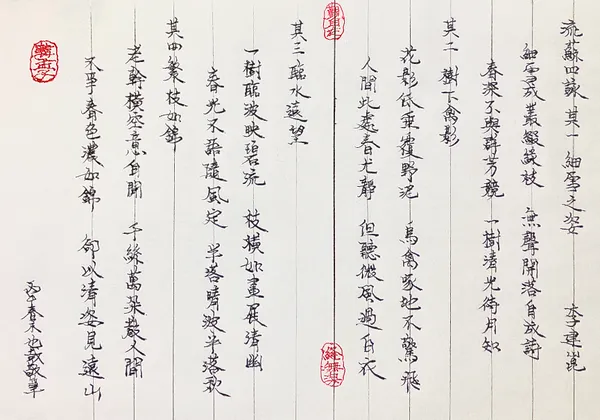 流蘇四詠 其一 細雪之姿 李建崑
細雪成叢綴蘇枝 無聲開落自成詩
春深不與群芳競 一樹清光待月知
其二 樹下禽影
花影低垂覆野泥 鳥禽啄地不驚飛
人間此處春光靜 但聽微風過白衣
其三 臨水遠望
一樹臨波映碧流 枝橫如畫展清幽
春光不語隨風定 半落晴波半落秋
其四 繁枝如錦
老幹橫空意自閒 千絲萬朵散人間
不爭春色濃如錦 卻以清姿見遠山
春末 敬筆